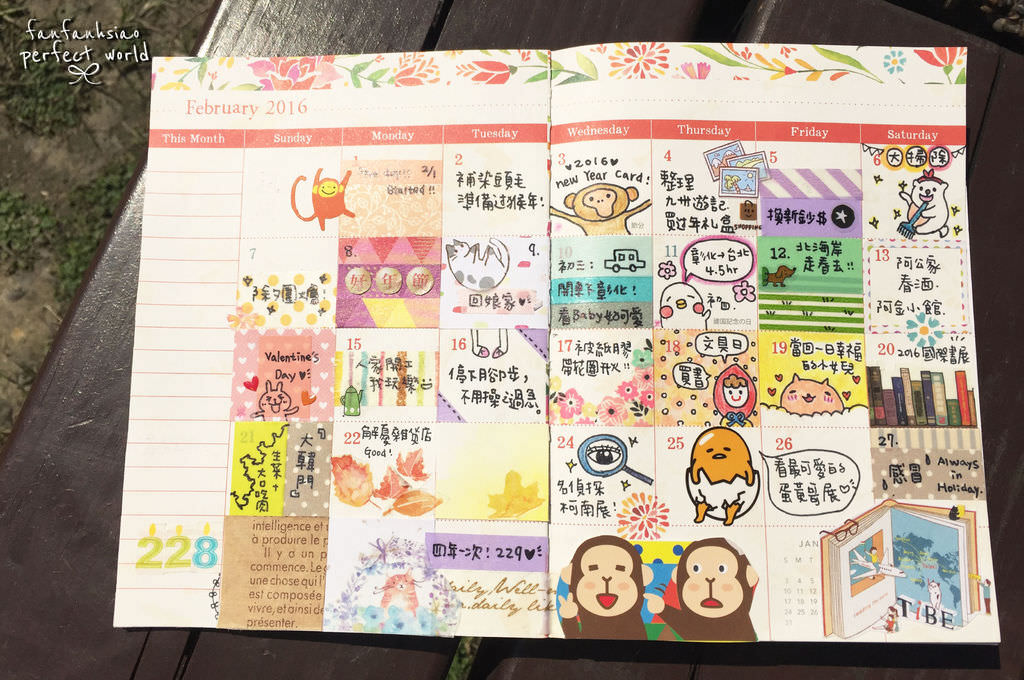 fanfanhsiao
perfect world
February 2016
This Month
Sunday
Monday
Tuesday
Wednesday
Thursday
Friday
Saturday
2/1
Started!!
2
補染頭毛
準備過猴年!
3
2016
new Year Card!
節分
4
整理
九州遊記
買过年礼盒
SHOPPING
5
換新金少#
6
大掃除
7
除夕圍大爐!
8.
好年節
9.
回娘家
10
初三:
開車下彰化!
看Baby好可愛
11
彰化→台北
4.5hr
初四
建国記念の日
12.
北海岸
走春去!!
13
阿公家
春酒.
阿金小館.
Valentine's
Day
15
人家開工
我玩樂
16
停下腳步,
不用操之過急。
17
被紙膠
帶花圍攻!!
18
文具日
買書
19
當回一日幸福
的小女兒
20
2016國際書展
21
生菜+
大口吃肉
大韓門
22
解憂雜貨店
Good!
24
名偵探
柯南展!
25
26
看最可愛的
蛋黃哥展
27.
感冒
Always
in
Holiday.
228
intelligence et
à produire le
"Il y a un
commence. Le
une chose qui l'
est composée
vivre, et ainsi de
présenter.
四年一次! 229
JAN
S M T
3 4 5
10 11 12
17 18 19
24 25 26
31
TiBE